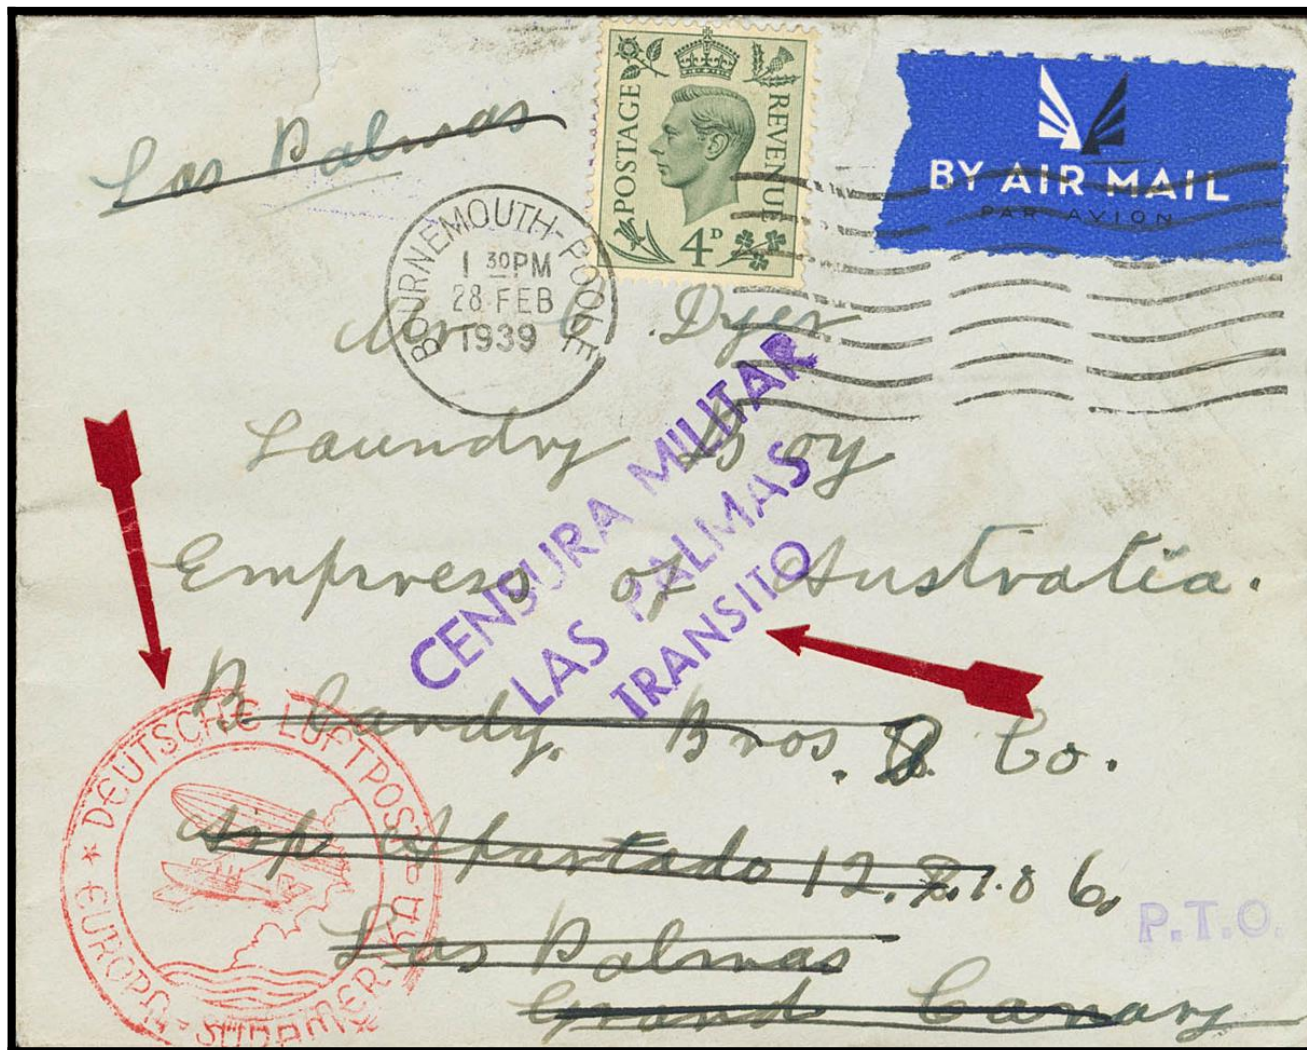 Las Palmas
POSTAGE REVENUE
4D
BY AIR MAIL
PAR AVION
BOURNEMOUTH-POOLE
1 30PM
28 FEB
1939
Mr C. Dyer
Laundry Boy
Empress of Australia.
CENSURA MILITAR
LAS PALMAS
TRANSITO
Bros. & Co.
Apartado 12.
Las Palmas
Grand Canary
DEUTSCHE LUFTPOST
EUROPA-SÜDAMERIKA
P.T.O.